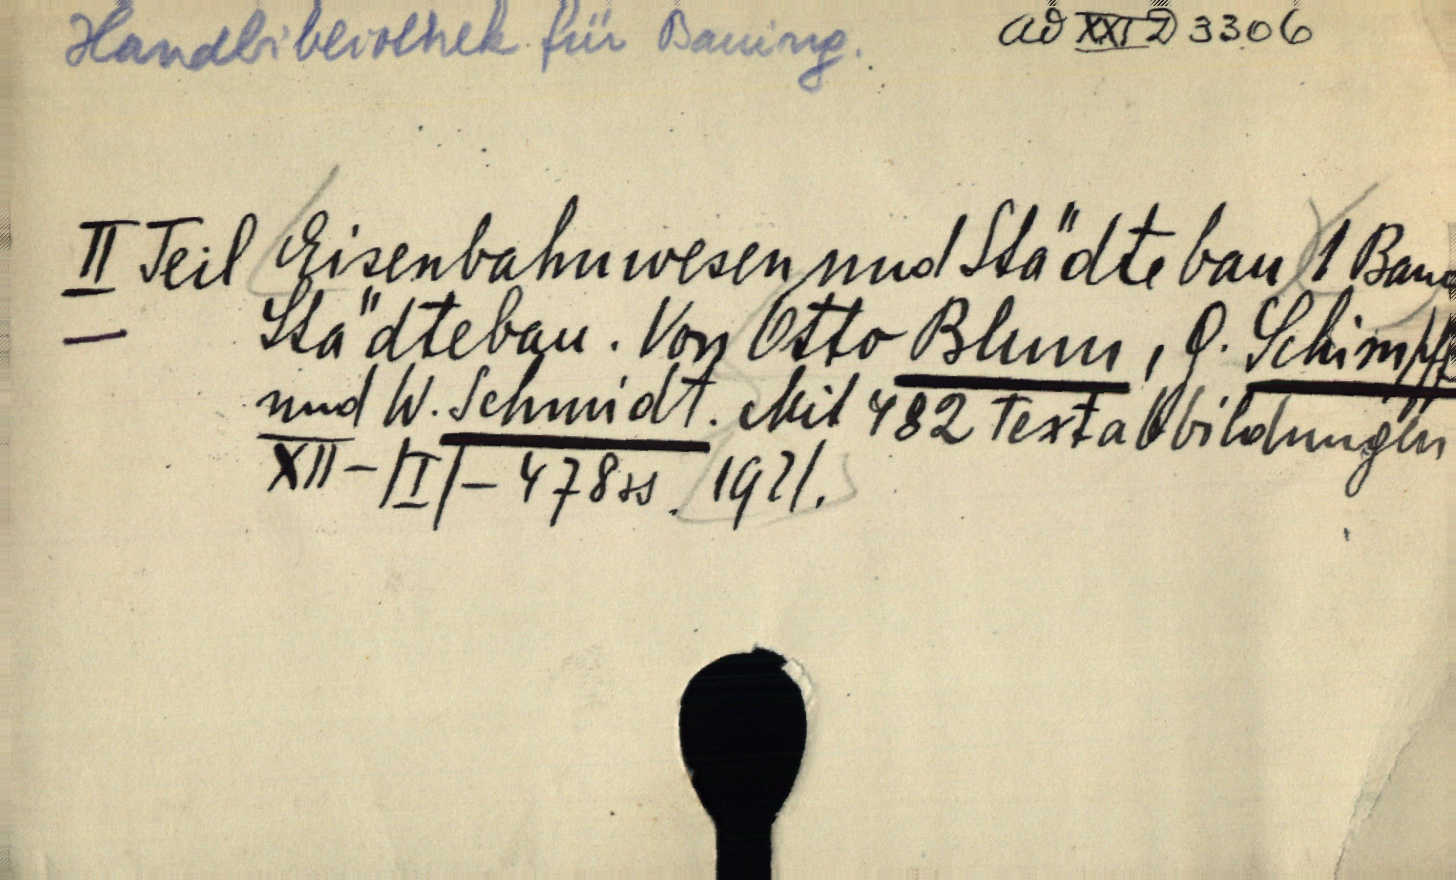 Handbibliothek für Bauing. ad XXI D 3306
II Teil Eisenbahnwesen und Städtebau 1 Band
Städtebau. Von Otto Blum, G. Schimpff
und W. Schmidt. Mit 482 Textabbildungen
XII-|I|-478 ss. 1921.